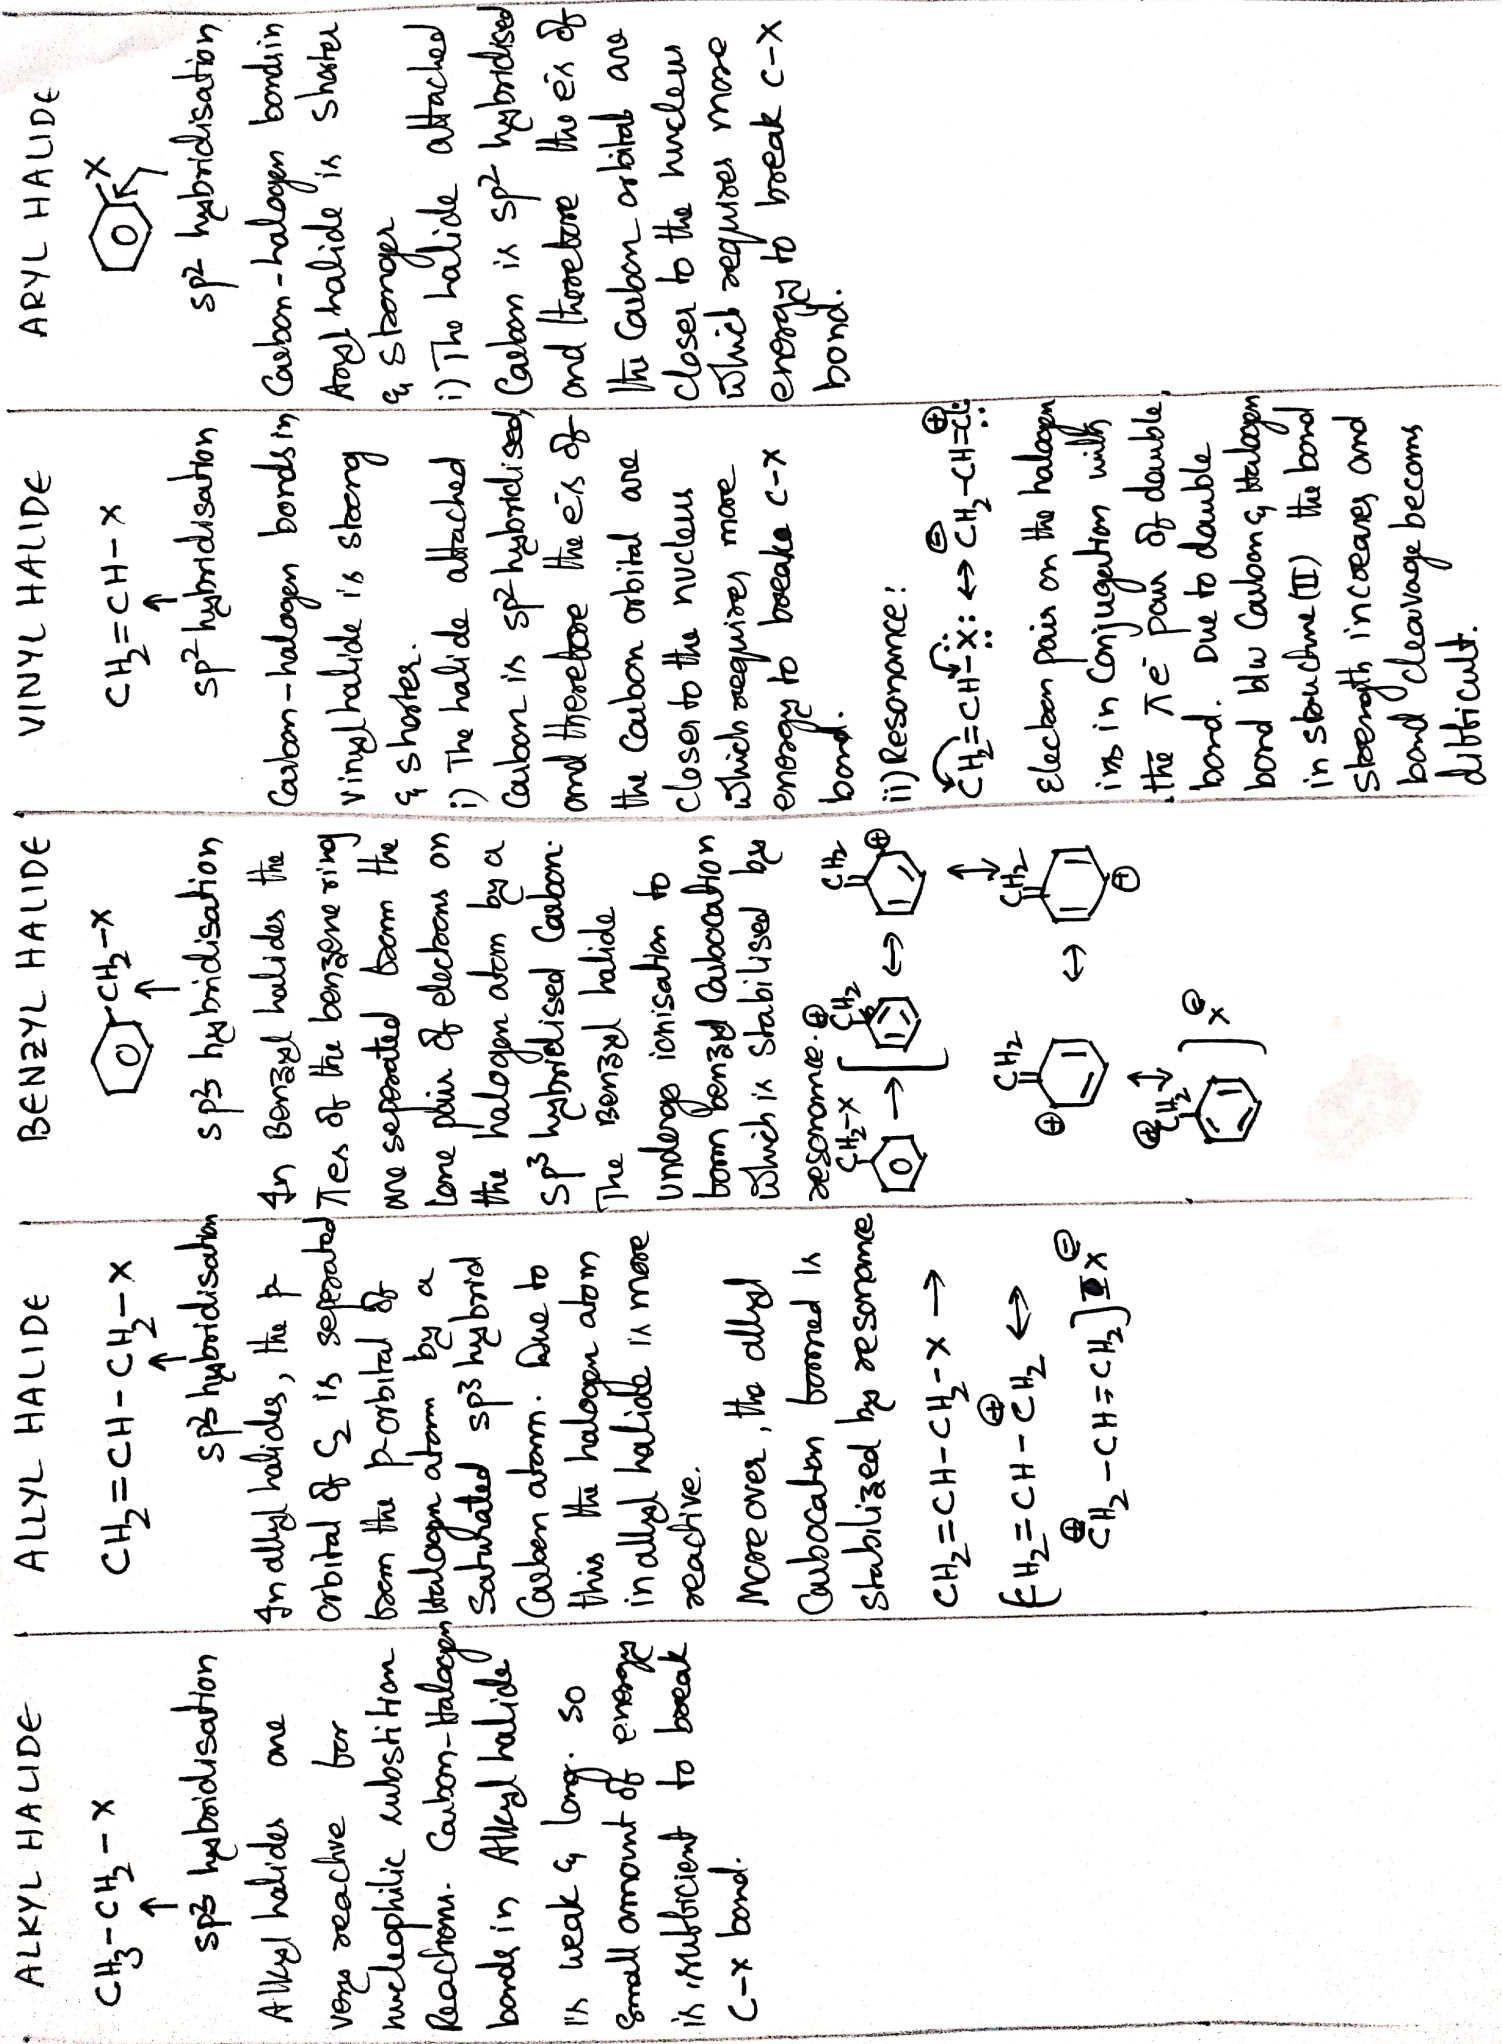 ALKYL HALIDE
CH3-CH2-X
↑
sp3 hybridisation
Alkyl halides are
very reactive for
nucleophilic substition
Reactions. Carbon-Halogen
bonds in Alkyl halide
is weak & long. so
small amount of energy
is sufficient to break
C-X bond.
ALLYL HALIDE
CH2=CH-CH2-X
↑
sp3 hybridisation
In allyl halides, the p
orbital of C2 is seperated
from the p-orbital of
Halogen atom by a
Saturated sp3 hybrid
Carbon atom. Due to
this the halogen atom
in allyl halide is more
reactive.
Moreover, the allyl
Carbocation formed is
stabilized by resonance
CH2=CH-CH2-X →
[CH2=CH-CH2⊕ ↔
⊕CH2-CH=CH2] X⊖
BENZYL HALIDE
CH2-X
↑
sp3 hybridisation
In Benzyl halides the
πes of the benzene ring
are seperated from the
lone pair of electrons on
the halogen atom by a
sp3 hybridised Carbon.
The Benzyl halide
undergo ionisation to
form benzyl Carbocation
which is stabilised by
resonance.
CH2-X → [⊕CH2 ↔ CH2 ⊕
↕
⊕ CH2 ↔ CH2 ⊕
↕
⊕CH2 ] X⊖
VINYL HALIDE
CH2=CH-X
↑
sp2 hybridisation
Carbon-halogen bonds in
vinyl halide is strong
& shorter.
i) The halide attached
Carbon is sp2 hybridised,
and therefore the e⁻s of
the Carbon orbital are
closer to the nucleus
which requires more
energy to breake C-X
bond.
ii) Resonance:
CH2=CH-X: ↔ ⊖CH2-CH=Cl:⊕
Electron pairs on the halogen
ins in Conjugation with
the πe⁻ pair of double
bond. Due to double
bond b/w Carbon & Halogen
in structure (II) the bond
strength increares and
bond cleavage becoms
difficult.
ARYL HALIDE
X
sp2 hybridisation
Carbon-halogen bonds in
Aryl halide is shorter
& stronger
i) The halide attached
Carbon is sp2 hybridised
and therefore the e⁻s of
the Carbon orbital are
closer to the nucleus
which requires more
energy to break C-X
bond.